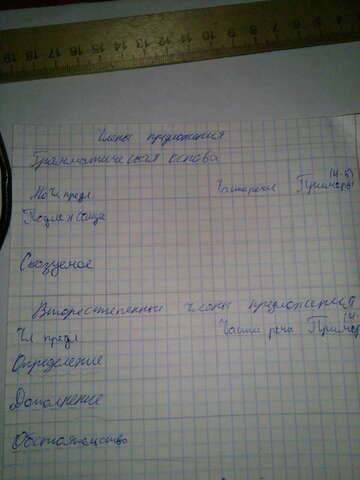 19 18 17 16 15 14 13 12 11 10 9 8 7 6 5 4
Члены предложения
Грамматическая основа
предл Части речи Примеры (4-5)
Подлежащее
Сказуемое
Второстепенные члены предложения
Чл предл Части речи Пример (4-
Определение
Дополнение
Обстоятельство